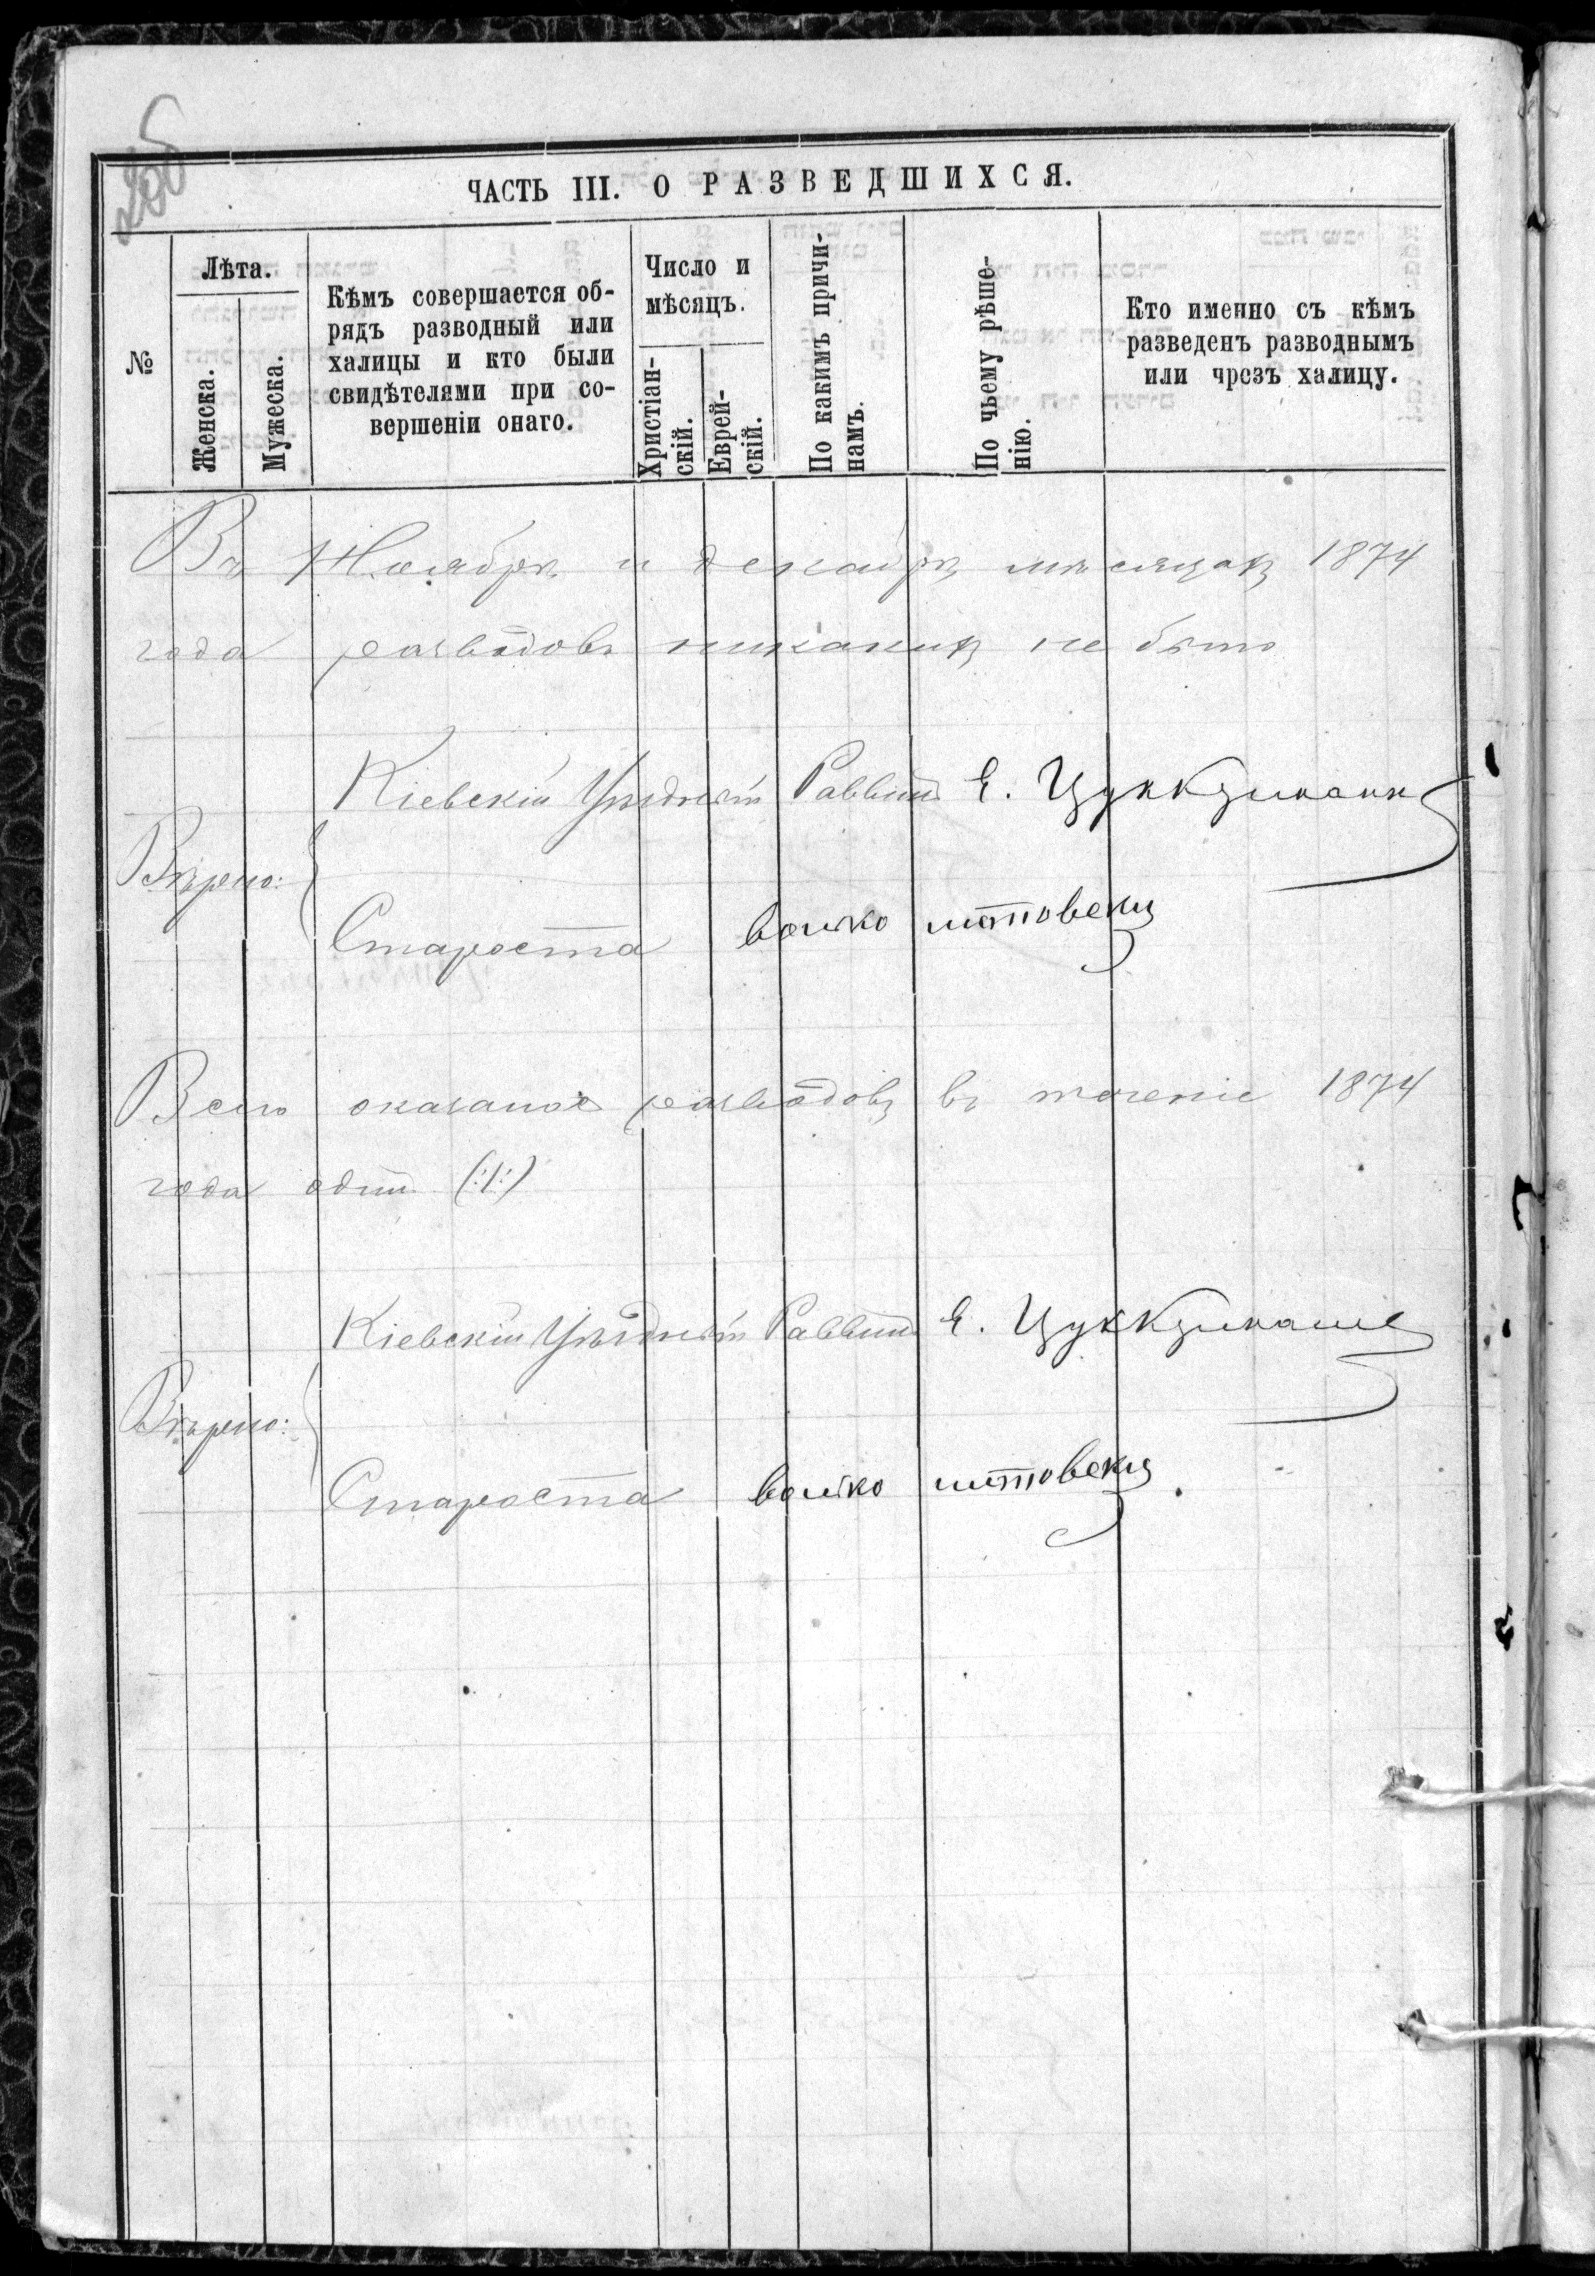 ЧАСТЬ III. О РАЗВЕДШИХСЯ.
№
Лѣта.
Женска.
Мужеска.
Кѣмъ совершается об-
рядъ разводный или
халицы и кто были
свидѣтелями при со-
вершеніи онаго.
Число и
мѣсяцъ.
Христіан-
скій.
Еврей-
скій.
По какимъ причи-
намъ.
По чьему рѣше-
нію.
Кто именно съ кѣмъ
разведенъ разводнымъ
или чрезъ халицу.
Въ Ноябрѣ и декабрѣ мѣсяцахъ 1874
года разводовъ никакихъ не было
Кіевскій Уѣздный Раввинъ Е. Цуккерманъ
Вѣрно:
Староста Волько
Всего оказалось разводовъ въ теченіе 1874
года одинъ (:1:)
Кіевскій Уѣздный Раввинъ Е. Цуккерманъ
Вѣрно:
Староста Волько